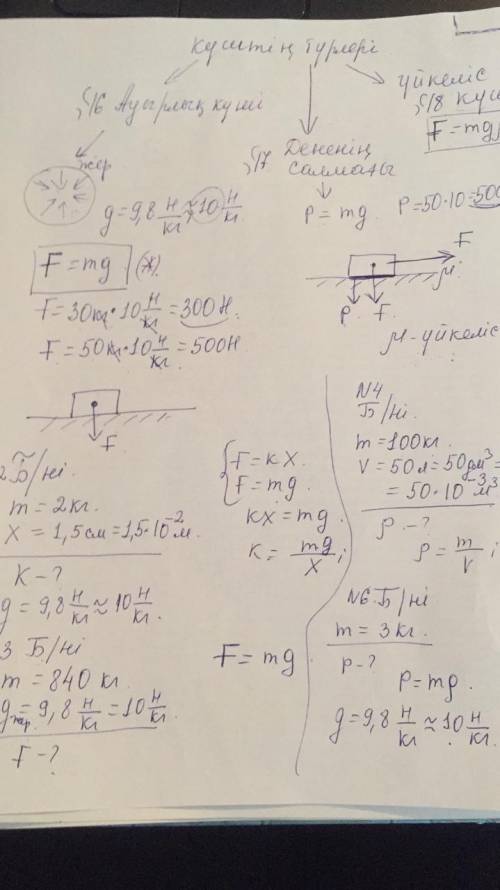 күштің түрлері
§16 Ауырлық күші
үйкеліс
§18 күш
F = mg
§17 Дененің
салмағы
жер
g = 9,8 Н/кг ≈ 10 Н/кг
P = mg.
P = 50·10 = 500
F = mg (ж)
F = 30кг·10 Н/кг = 300Н.
F = 50кг·10 Н/кг = 500Н
F
F
μ
P
F
μ-үйкеліс
2 Б/ні.
m = 2кг.
X = 1,5см = 1,5·10⁻²м.
K - ?
g = 9,8 Н/кг ≈ 10 Н/кг.
F = kX.
F = mg.
kX = mg.
k = mg/X;
N4
Б/ні.
m = 100кг.
V = 50л = 50дм³ =
= 50·10⁻³м³
ρ - ?
ρ = m/V;
3 Б/ні
m = 840 кг.
gжер = 9,8 Н/кг = 10 Н/кг.
F - ?
F = mg.
N6. Б/ні
m = 3кг.
P - ?
P = mg.
g = 9,8 Н/кг ≈ 10 Н/кг.